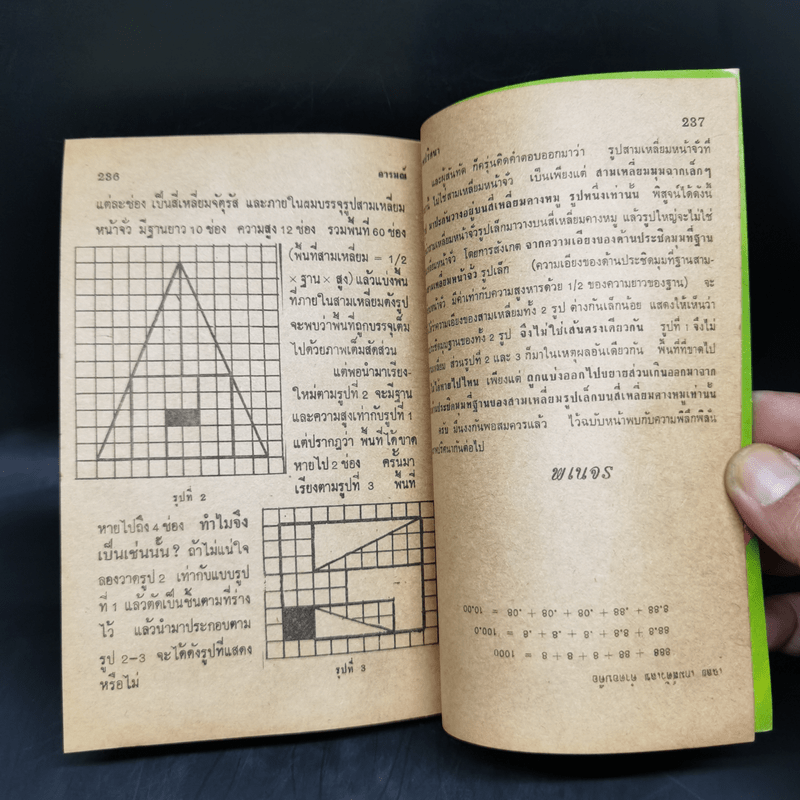 236
อารมณ์
แต่ระะช่อง เป็นสี่เหลี่ยมจัตุรัส และภายในสมบรรจุรูปสามเหลี่ยม
หน้าจั่ว มีฐานยาว 10 ช่อง ความสูง 12 ช่อง รวมพื้นที่ 60 ช่อง
(พื้นที่สามเหลี่ยม = 1/2
× ฐาน × สูง) แล้วแบ่งพื้น
ที่ภายในสามเหลี่ยมดังรูป
จะพบว่าพื้นที่ถูกบรรจุเต็ม
ไปด้วยภาพเต็มสัดส่วน
แต่พอนำมาเรียง-
ใหม่ตามรูปที่ 2 จะมีฐาน
และความสูงเท่ากับรูปที่ 1
แต่ปรากฏว่า พื้นที่ได้ขาด
หายไป 2 ช่อง ครั้นมา
เรียงตามรูปที่ 3 พื้นที่
รูปที่ 2
หายไปถึง 4 ช่อง ทำไมจึง
เป็นเช่นนั้น ? ถ้าไม่แน่ใจ
ลองวาดรูป 2 เท่ากับแบบรูป
ที่ 1 แล้วตัดเป็นชิ้นตามที่ร่าง
ไว้ แล้วนำมาประกอบตาม
รูป 2-3 จะได้ดังรูปที่แสดง
หรือไม่
รูปที่ 3
237
และผู้สันทัด ก็ครุ่นคิดคำตอบออกมาว่า รูปสามเหลี่ยมหน้าจั่วที่
ไม่ใช่สามเหลี่ยมหน้าจั่ว เป็นเพียงแต่ สามเหลี่ยมมุมฉากเล็กๆ
มาประดับวางอยู่บนสี่เหลี่ยมคางหมู รูปหนึ่งเท่านั้น พิสูจน์ได้ดังนี้
สามเหลี่ยมหน้าจั่วรูปเล็กมาวางบนสี่เหลี่ยมคางหมู แล้วรูปใหญ่จะไม่ใช่
เหลี่ยมหน้าจั่ว โดยการสังเกต จากความเอียงของด้านประชิดมุมที่ฐาน
สามเหลี่ยมหน้าจั่ว รูปเล็ก (ความเอียงของด้านประชิดมุมที่ฐานสาม-
หน้าจั่ว มีค่าเท่ากับความสูงหารด้วย 1/2 ของความยาวของฐาน) จะ
ความเอียงของสามเหลี่ยมทั้ง 2 รูป ต่างกันเล็กน้อย แสดงให้เห็นว่า
ประชิดมุมฐานของทั้ง 2 รูป จึงไม่ใช่เส้นตรงเดียวกัน รูปที่ 1 จึงไม่
เหลี่ยม ส่วนรูปที่ 2 และ 3 ก็มาในเหตุผลอันเดียวกัน พื้นที่ที่ขาดไป
ได้หายไปไหน เพียงแต่ ถูกแบ่งออกไปขยายส่วนเกินออกมาจาก
ประชิดมุมที่ฐานของสามเหลี่ยมรูปเล็กบนสี่เหลี่ยมคางหมูเท่านั้น
ครับ มึนงงกันพอสมควรแล้ว ไว้ฉบับหน้าพบกับความพิลึกพิลั่น
ปริศนากันต่อไป
พเนจร
8.88 + .88 + .08 + .08 + .08 = 10.00
88.8 + 8.8 + .8 + .8 + .8 = 100.0
888 + 88 + 8 + 8 + 8 = 1000